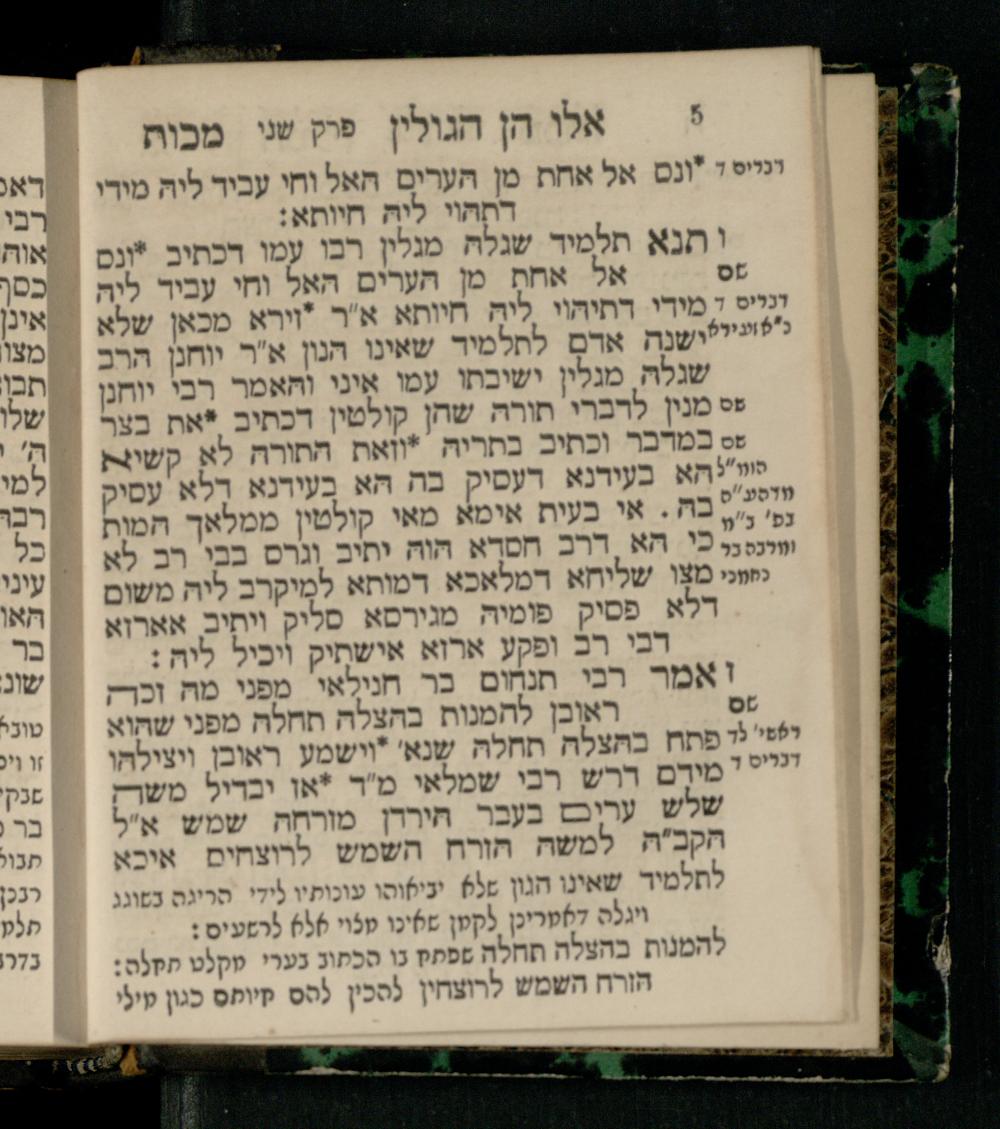 5 אלו הן הגולין פרק שני מכות
דברים ד *ונס אל אחת מן הערים האל וחי עביד ליה מידי
דתהוי ליה חיותא:
ו תנא תלמיד שגלה מגלין רבו עמו דכתיב *ונס
שם אל אחת מן הערים האל וחי עביד ליה
דברים ד מידי דתיהוי ליה חיותא א״ר *זירא מכאן שלא
ישנה אדם לתלמיד שאינו הגון א״ר יוחנן הרב
שגלה מגלין ישיבתו עמו איני והאמר רבי יוחנן
שם מנין לדברי תורה שהן קולטין דכתיב *את בצר
שם במדבר וכתיב בתריה *וזאת התורה לא קשיא
הא בעידנא דעסיק בה הא בעידנא דלא עסיק
בה. אי בעית אימא מאי קולטין ממלאך המות
כי הא דרב חסדא הוה יתיב וגרס בבי רב לא
מצו שליחא דמלאכא דמותא למיקרב ליה משום
דלא פסיק פומיה מגירסא סליק ויתיב אארזא
דבי רב ופקע ארזא אישתיק ויכיל ליה:
ז אמר רבי תנחום בר חנילאי מפני מה זכה
שם ראובן להמנות בהצלה תחלה מפני שהוא
ראשי׳ לד פתח בהצלה תחלה שנא׳ *וישמע ראובן ויצילהו
דברים ד מידם דרש רבי שמלאי מ״ד *אז יבדיל משה
שלש ערים בעבר הירדן מזרחה שמש א״ל
הקב״ה למשה הזרח השמש לרוצחים איכא
לתלמיד שאינו הגון שלא יביאוהו עונותיו לידי הריגה בשוגג
ויגלה דאמרינן לקמן שאינו מצוי אלא לרשעים:
להמנות בהצלה תחלה שפתח בו הכתוב בערי מקלט תחלה:
הזרח השמש לרוצחין להכין להם חיותם כגון מילי